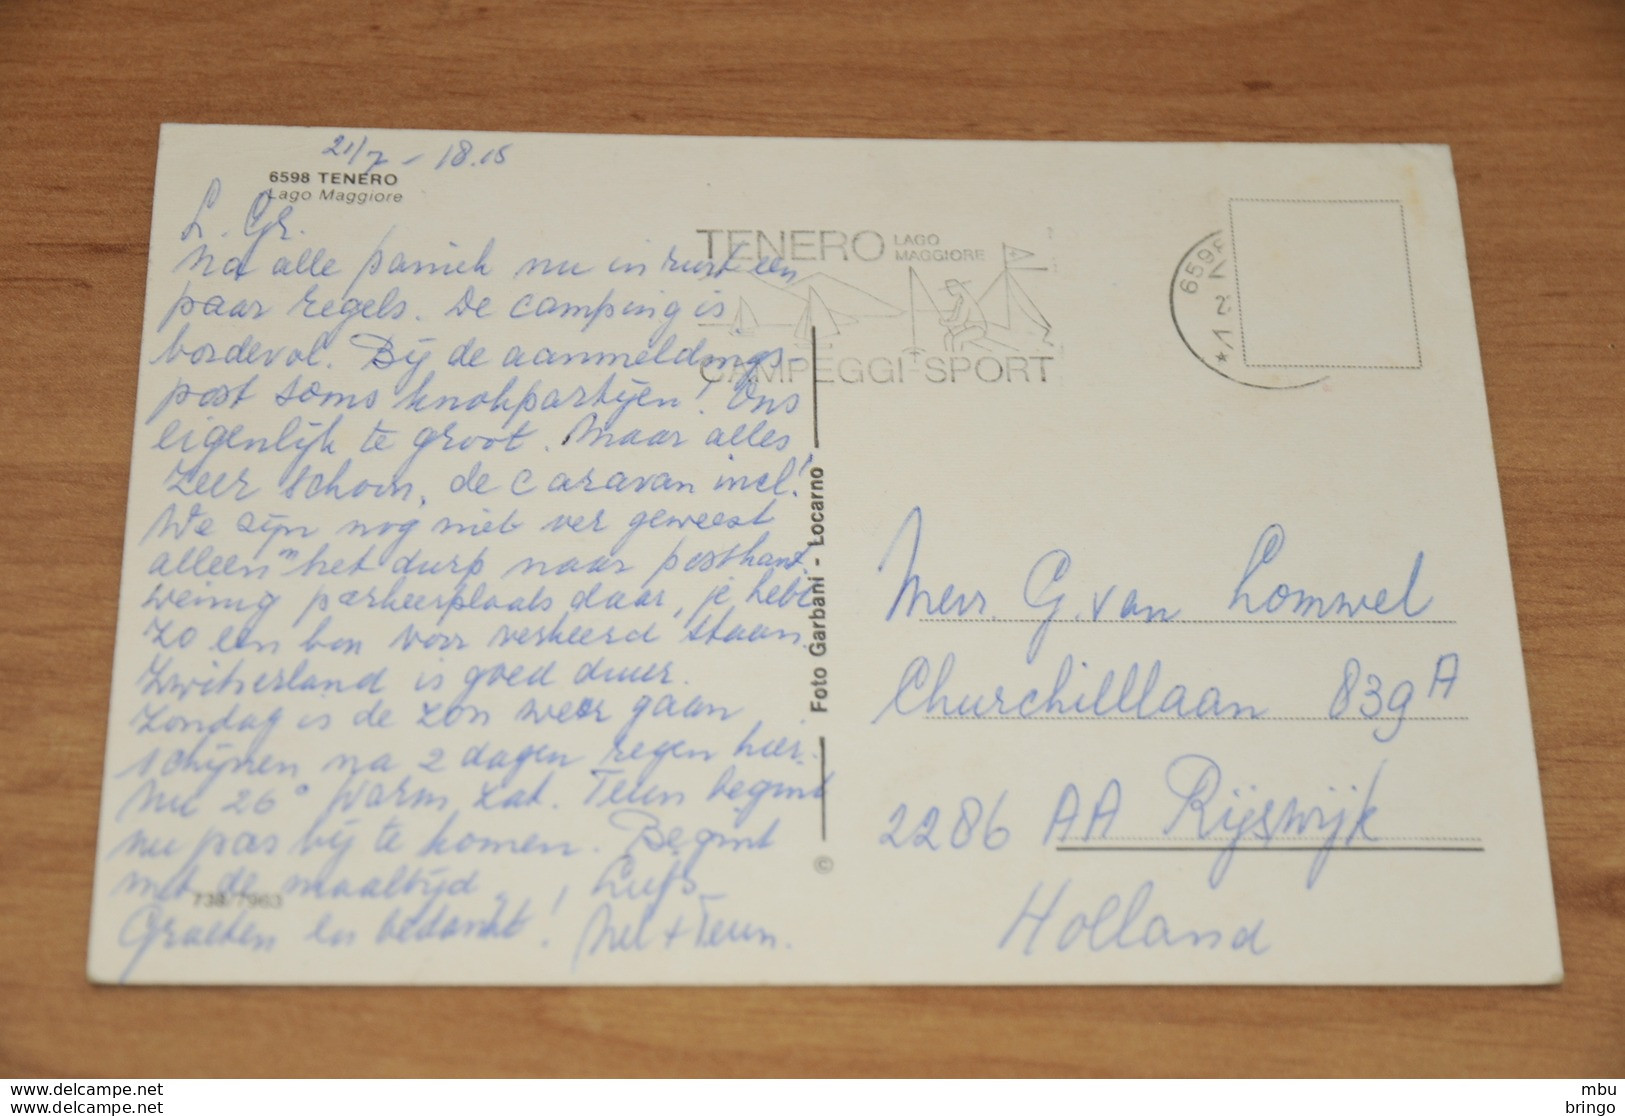 21/7 - 18.15
6598 TENERO
Lago Maggiore
L. Gr.
Na alle paniek nu in rust een
paar regels. De camping is
bordevol. Bij de aanmeldings-
post soms knokpartijen! Ons
eigenlijk te groot. Maar alles
zeer schoon, de caravan incl!
We zijn nog niet ver geweest
alleen in het durp naar postkant.
weinig parkeerplaats daar, je hebt
zo een bon voor verkeerd staan.
Zwitserland is goed duur.
Zondag is de zon weer gaan
schijnen na 2 dagen regen hier.
Nu 26° warm, zat. Teun begint
nu pas bij te komen. Begint
met de maaltijd! Liefs
Groeten en bedankt! Nel + Teun.
738/7963
TENERO LAGO
MAGGIORE
CAMPEGGI-SPORT
6598
© Foto Garbani - Locarno
Mevr. G. van Lommel
Churchilllaan 839 A
2286 AA Rijswijk
Holland
delcampe.net
delcampe.net
mbu
bringo